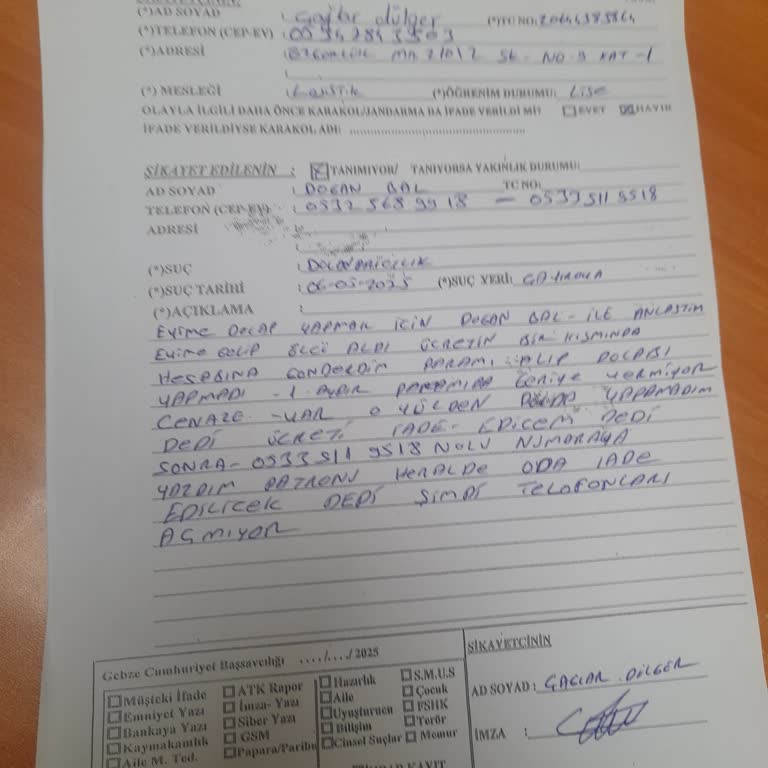 (*)AD SOYAD : Çağlar dülger (*)TC NO:
(*)TELEFON (CEP-EV) :
(*)ADRESİ : MA SK. NO 9 KAT -1
(*) MESLEĞİ : (*)ÖĞRENİM DURUMU: Lise
OLAYLA İLGİLİ DAHA ÖNCE KARAKOL/JANDARMA DA İFADE VERİLDİ Mİ? EVET HAYIR
İFADE VERİLDİYSE KARAKOL ADI: ........................................
ŞİKAYET EDİLENİN : TANIMIYOR/ TANIYORSA YAKINLIK DURUMU:
AD SOYAD : DOĞAN BAL TC NO:
TELEFON (CEP-EV) : 0532 568 9918 — 0533 511 9518
ADRESİ :
(*)SUÇ : DOLANDIRICILIK
(*)SUÇ TARİHİ : 06-03-2025 (*)SUÇ YERİ:
(*)AÇIKLAMA :
EVİME DOLAP YAPMAK İÇİN DOĞAN BAL - İLE ANLAŞTIM
EVİME GELİP ÖLÇÜ ALDI ÜCRETİN BİR KISMINDA
HESABINA GÖNDERDİM PARAMI ALIP DOLABI
YAPMADI - 1 AYDIR GERİYE VERMİYOR
CENAZE - VAR O YÜZDEN YAPAMADIM
DEDİ ÜCRETİ İADE - EDİCEM DEDİ
SONRA - 0533 511 9518 NOLU NUMARAYA
YAZDIM PATRONU HERALDE ODA İADE
EDİLİCEK DEDİ ŞİMDİ TELEFONLARI
AÇMIYOR
Gebze Cumhuriyet Başsavcılığı ..../..../2025
Müşteki İfade
Emniyet Yazı
Bankaya Yazı
Kaymakamlık
Aile M. Ted.
ATK Rapor
İmza- Yazı
Siber Yazı
GSM
Papara/Paribu
Hazırlık
Aile
Uyuşturucu
Bilişim
Cinsel Suçlar
S.M.U.S
Çocuk
FSHK
Terör
Memur
ŞİKAYETCİNİN
AD SOYAD : ÇAĞLAR DÜLGER
İMZA :